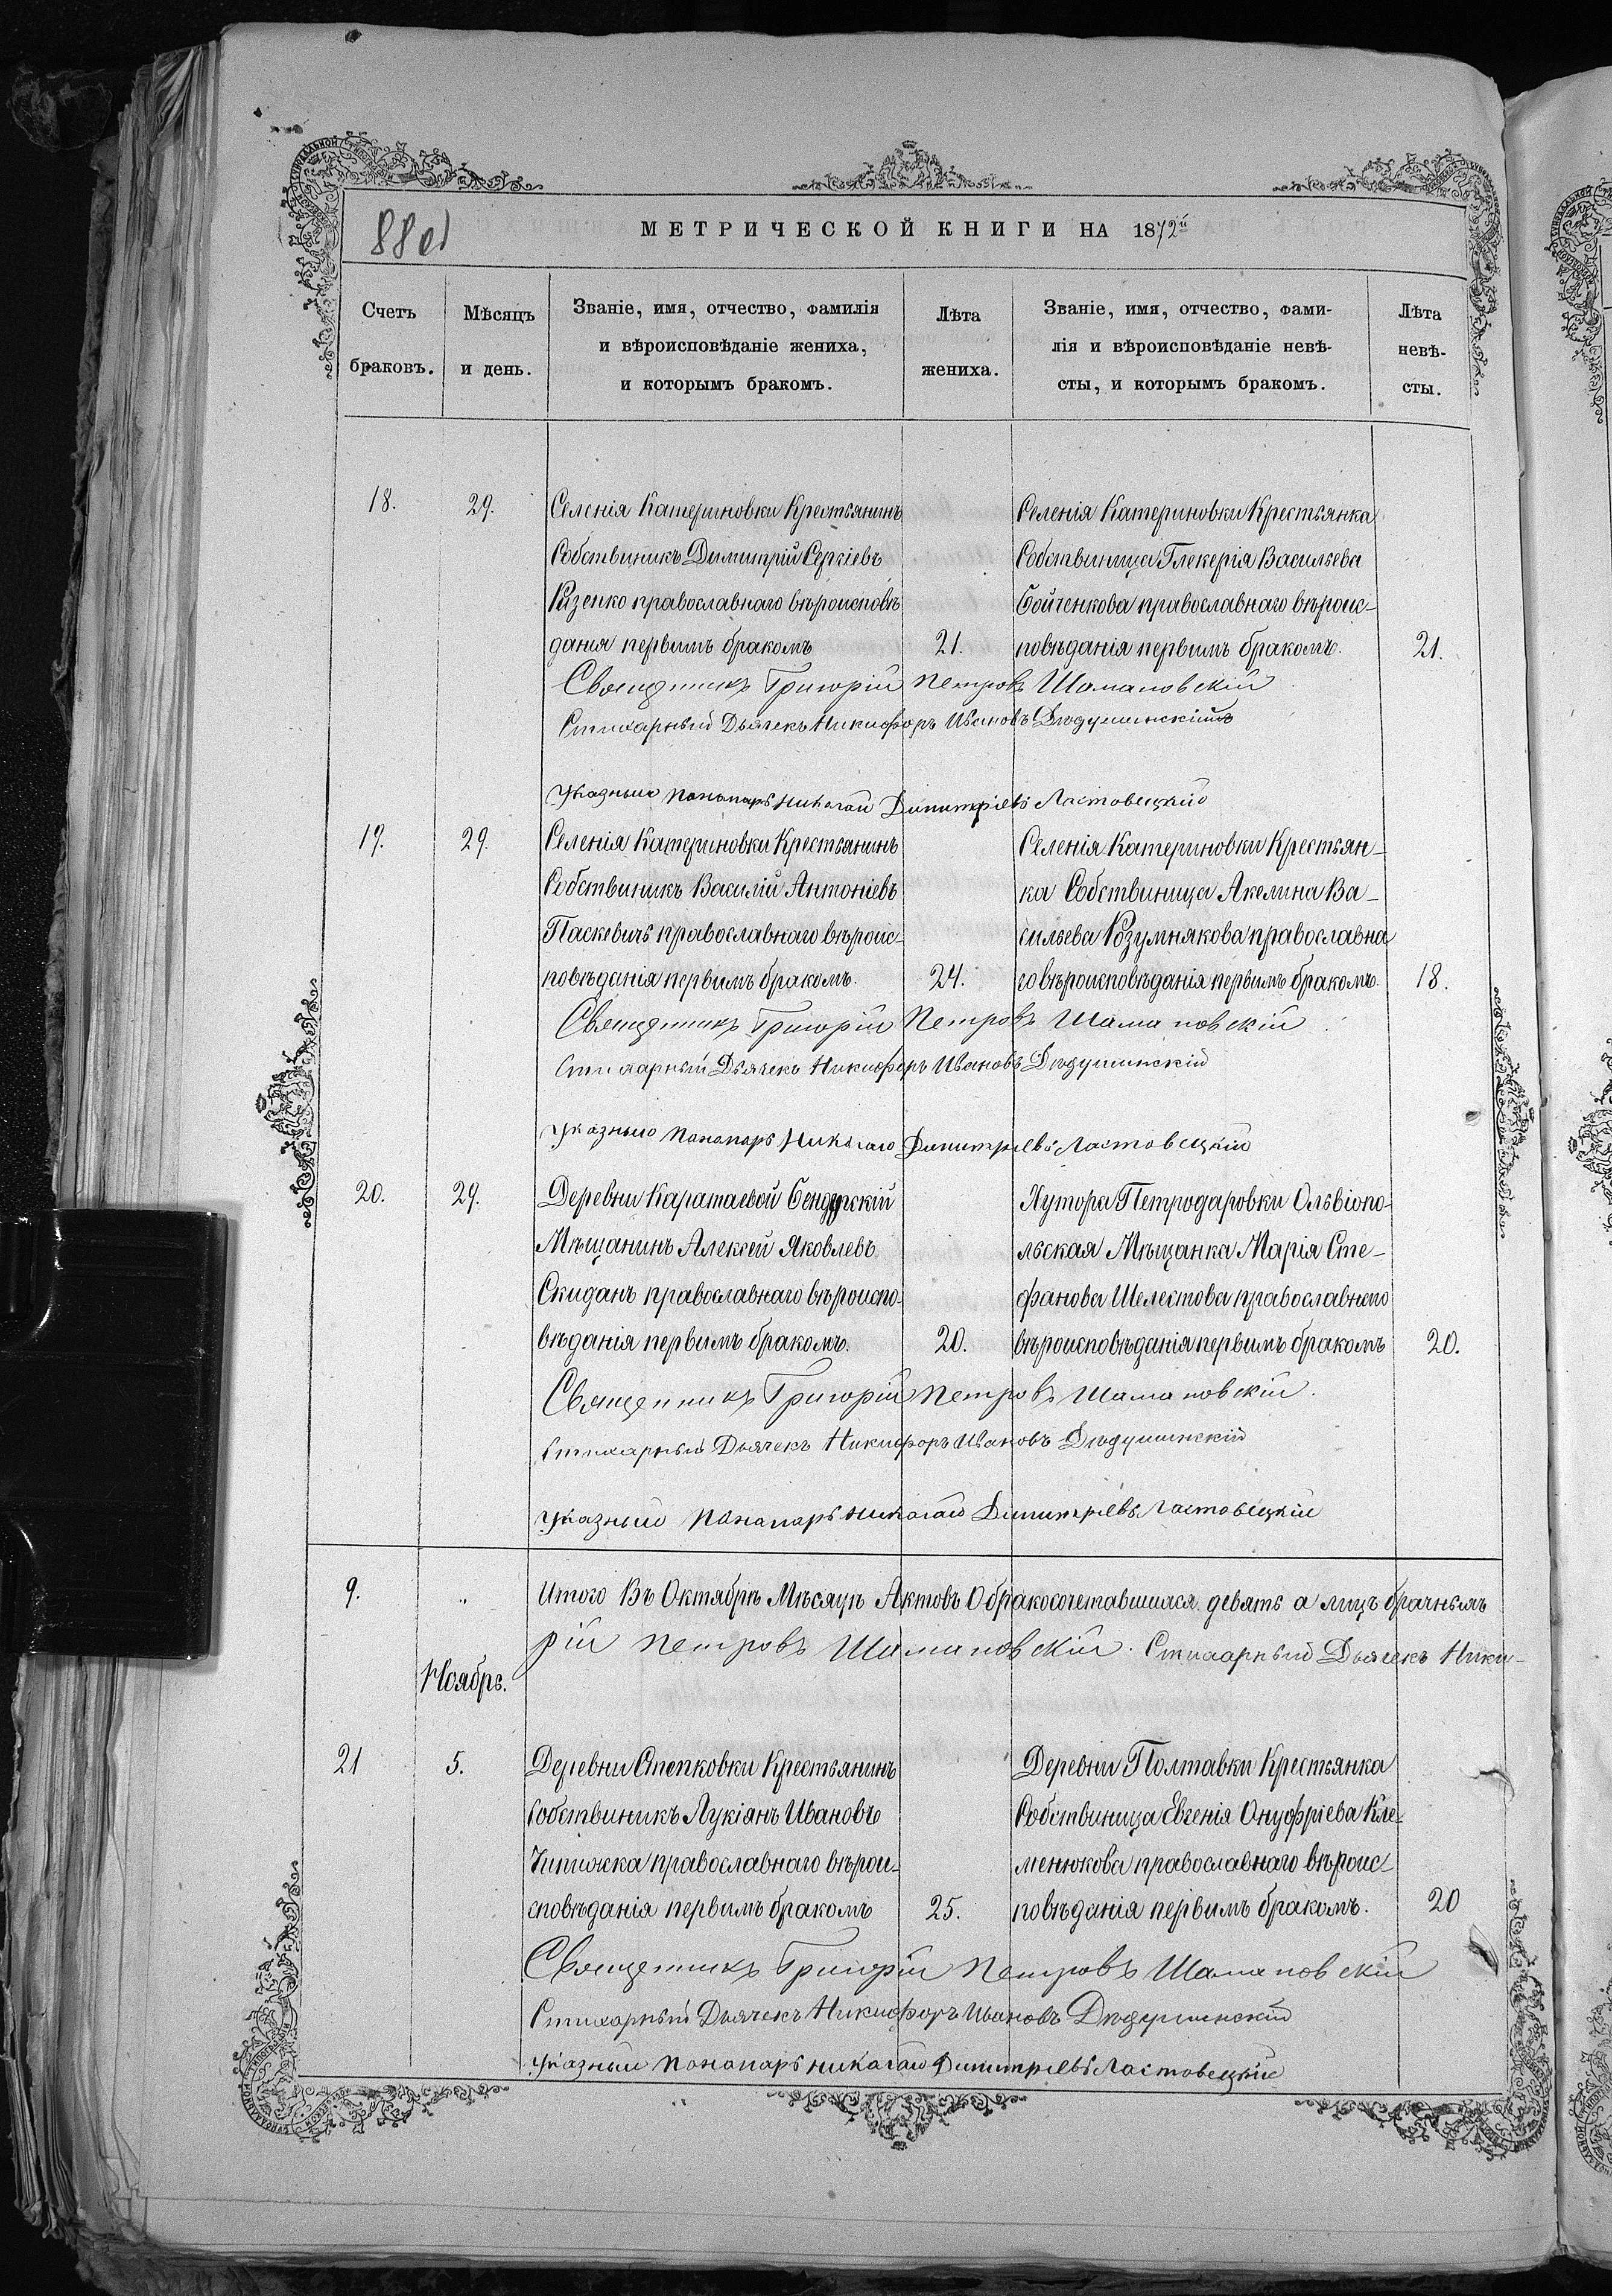 880
МЕТРИЧЕСКОЙ КНИГИ НА 1872й
Счетъ браковъ.
Мѣсяцъ и день.
Званіе, имя, отчество, фамилія
и вѣроисповѣданіе жениха,
и которымъ бракомъ.
Лѣта жениха.
Званіе, имя, отчество, фами-
лія и вѣроисповѣданіе невѣ-
сты, и которымъ бракомъ.
Лѣта невѣ-
сты.
18. 29. Селенія Катериновки Крестьянинъ
Собствиникъ Димитрій Сергіевъ
православнаго вѣроисповѣ
данія первимъ бракомъ 21.
Селенія Катериновки Крестьянка
Собствиница Глекерія Васильева
Бойченкова православнаго вѣроис-
повѣданія первимъ бракомъ. 21.
Священникъ Григорій Петровъ Шамановскій
Стихарный Дьячекъ Никифоръ Ивановъ Дѣдушинскій
Указный Понамарь Николай Димитріевъ Ластовецкій
19. 29. Селенія Катериновки Крестьянинъ
Собствиникъ Василій Антоніевъ
Паскевичъ православнаго вѣроис-
повѣданія первимъ бракомъ. 24.
Селенія Катериновки Крестьян-
ка Собствиница Акелина Ва-
сильева Розумнякова православна
го вѣроисповѣданія первимъ бракомъ. 18.
Священникъ Григорій Петровъ Шамановскій
Стихарный Дьячекъ Никифоръ Ивановъ Дѣдушинскій
Указный Понамарь Николай Димитріевъ Ластовецкій
20. 29. Деревни Каратаевой
Мѣщанинъ Алексей Яковлевъ
Скиданъ православнаго вѣроиспо-
вѣданія первимъ бракомъ. 20.
Хутора Петродаровки Ольвіопо-
льская Мѣщанка Марія Сте-
фанова Шелестова православнаго
вѣроисповѣданія первимъ бракомъ 20.
Священникъ Григорій Петровъ Шамановскій.
Стихарный Дьячекъ Никифоръ Ивановъ Дѣдушинскій
Указный Понамарь Николай Димитріевъ Ластовецкій
9. „ Итого Въ Октябрѣ Мѣсяцѣ Актовъ О бракосочетавшихся девять а лицъ брачнымъ
рій Петровъ Шамановскій. Стихарный Дьячекъ Ники-
Ноябрь.
21 5. Деревни Степковки Крестьянинъ
Собствиникъ Лукіянъ Ивановъ
Чипижка православнаго вѣрои-
сповѣданія первимъ бракомъ 25.
Деревни Полтавки Крестьянка
Собствиница Евгенія Онуфріева Кле-
менюкова православнаго вѣроис-
повѣданія первимъ бракомъ. 20
Священникъ Григорій Петровъ Шамановскій
Стихарный Дьячекъ Никифоръ Ивановъ Дѣдушинскій
Указный Понамарь Николай Димитріевъ Ластовецкій